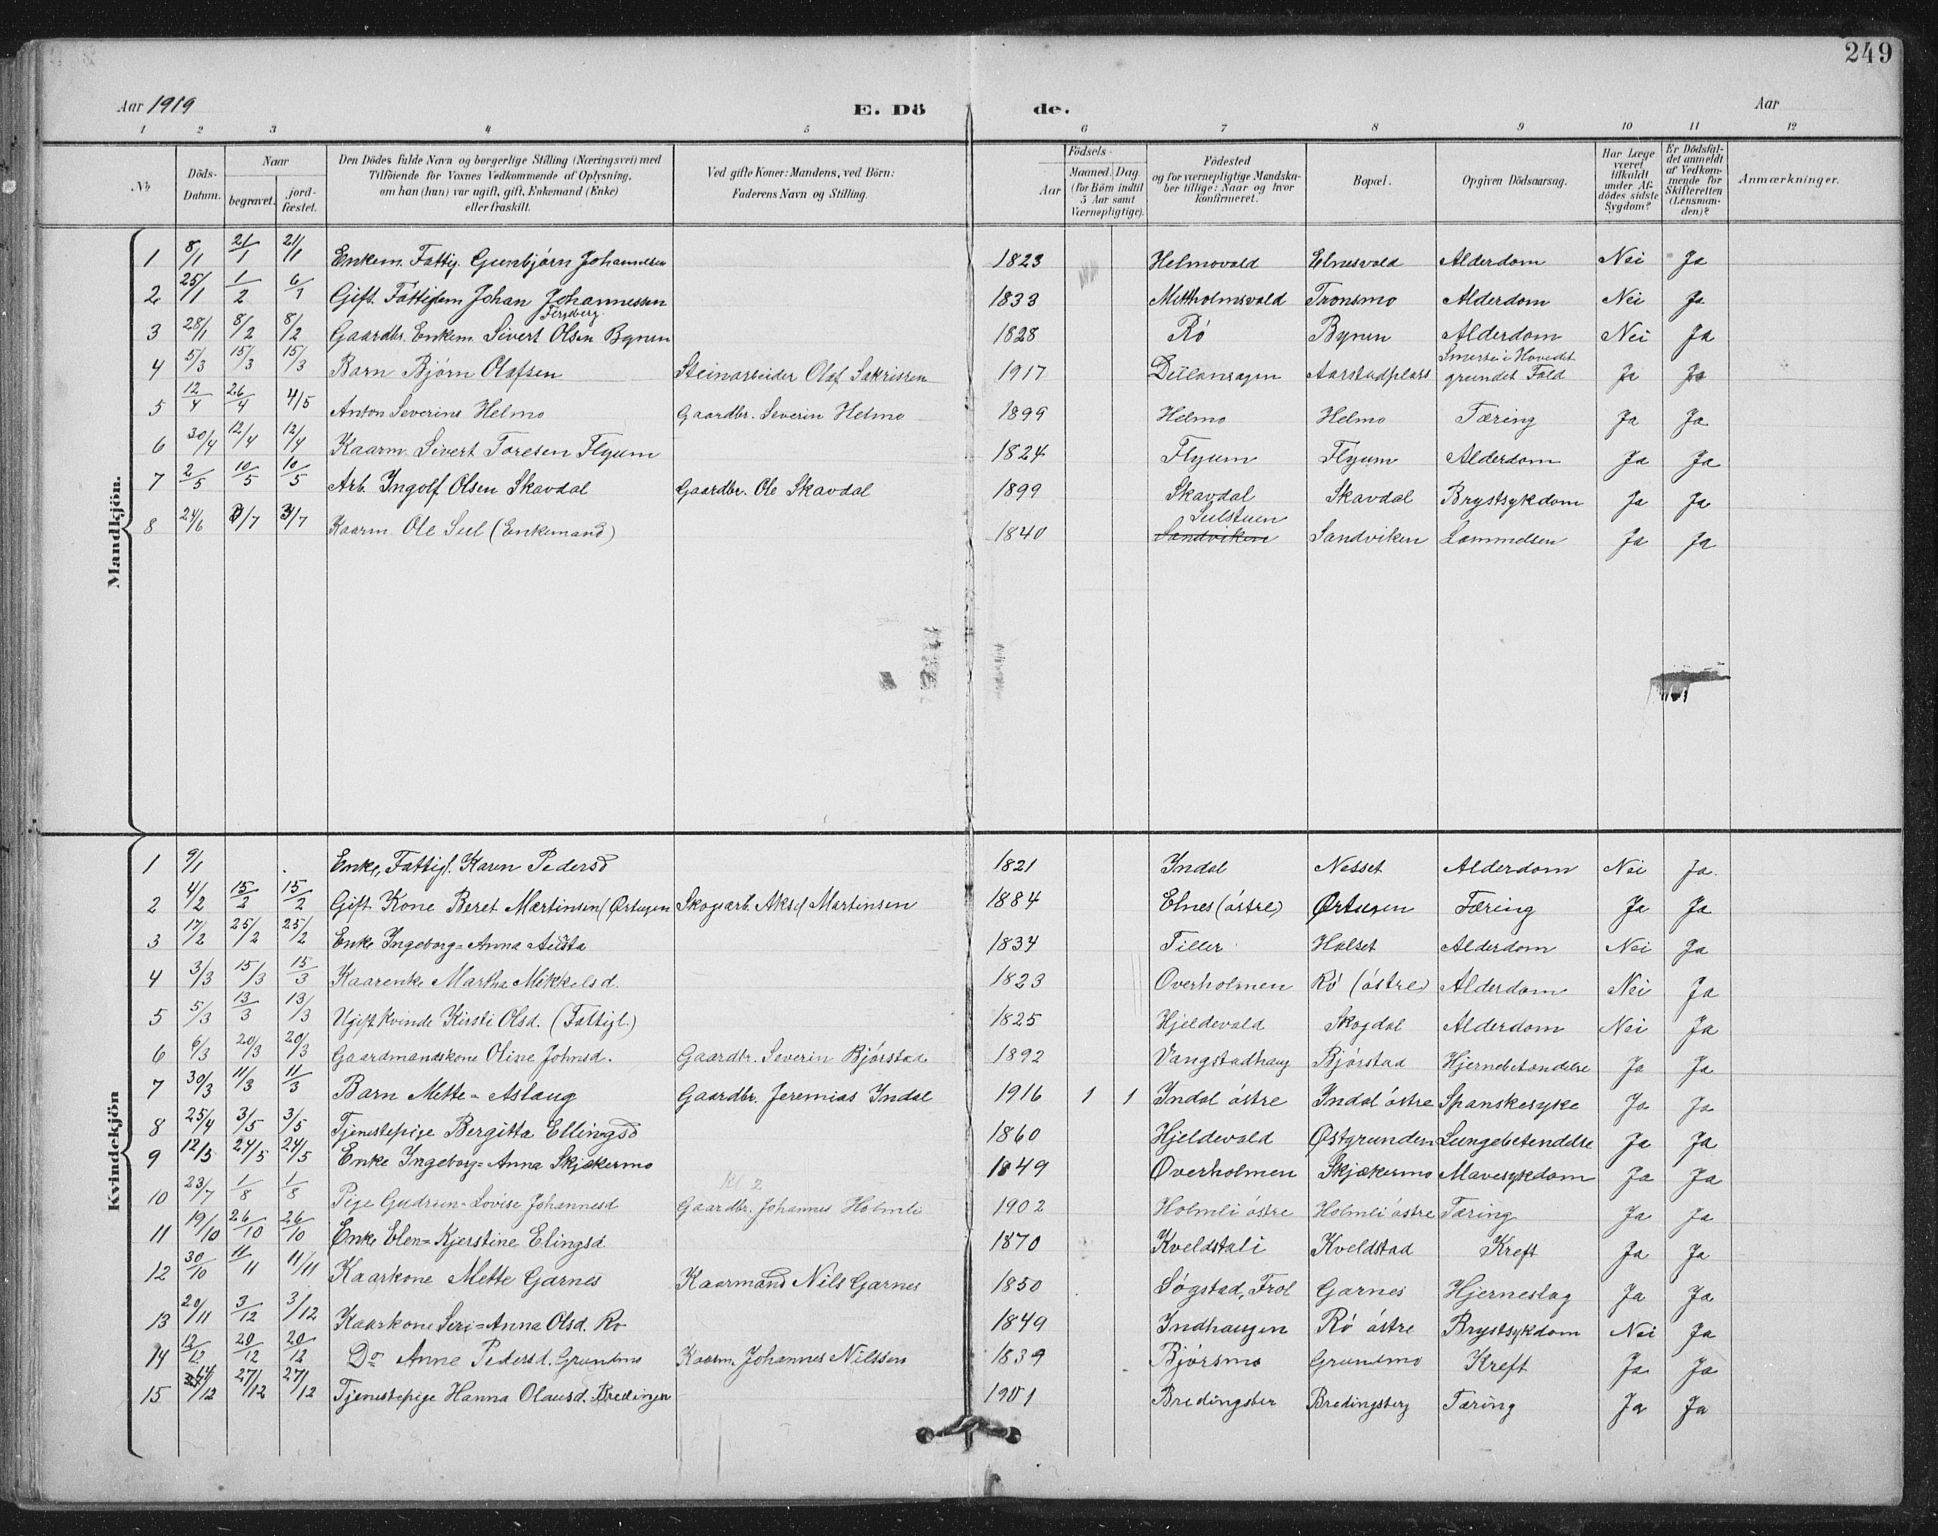 249
Aar 1919 E. Dö de. Aar
1 2 3 4 5 6 7 8 9 10 11 12
No. Döds-Datum. Naar begravet. jord-fæstet. Den Dödes fulde Navn og borgerlige Stilling (Næringsvei) med Tilföiende for Voxnes Vedkommende af Oplysning, om han (hun) var ugift, gift, Enkemand (Enke) eller fraskilt. Ved gifte Koner: Mandens, ved Börn: Faderens Navn og Stilling. Födsels- Aar Maaned. Dag. (for Börn indtil 5 Aar samt Værnepligtige). Födested og for værnepligtige Mandskaber tillige: Naar og hvor konfirmeret. Bopæl. Opgiven Dödsaarsag. Har Læge været tilkaldt under Afdödes sidste Sygdom? Er Dödsfaldet anmeldt af Vedkommende for Skifteretten (Lensmanden)? Anmærkninger.
Mandkjön.
1 8/1 21/1 21/1 Enkem. Fattig. Gunbjørn Johannesen 1823 Helmovald Elnesvald Alderdom Nei Ja
2 25/1 1/2 6/1 Gift Fattiglem Johan Johannessen 1833 Mettholmsvald Tronsmo Alderdom Nei Ja
3 28/1 8/2 8/2 Gaardbr. Enkem. Sivert Olsen Bynen 1828 Rö Bynen Alderdom Nei Ja
4 5/3 15/3 15/3 Barn Bjørn Olafsen Steinarbeider Olaf Sakrissen 1917 Aarstadplads Smerte i Hovedet grundet Fald Ja Ja
5 12/4 26/4 4/5 Anton Severins Helmo Gaardbr. Severin Helmo 1899 Helmo Helmo Tæring Ja Ja
6 30/4 12/4 12/4 Kaarm. Sivert Toresen Flyum 1824 Flyum Flyum Alderdom Ja Ja
7 2/5 10/5 10/5 Arb. Ingolf Olsen Skavdal Gaardbr. Ole Skavdal 1899 Skavdal Skavdal Brystsykdom Ja Ja
8 24/6 3/7 3/7 Kaarm. Ole Sul (Enkemand) 1840 Sulstuen Sandviken Sandviken Lammelsen Ja Ja
Kvindekjön
1 9/1 Enke, Fattigl. Karen Pedersd 1821 Indal Nesset Alderdom Nei Ja.
2 4/2 15/2 15/2 Gift Kone Beret Martinsen (Ørtugen Skogsarb. Aksel Martinsen 1884 Elnes (östre) Ørtugen Tæring Ja Ja
3 17/2 25/2 25/2 Enke Ingeborg-Anna Austa 1834 Tiller Halset Alderdom Nei Ja
4 3/3 15/3 15/3 Kaarenke Martha Mikkelsd. 1823 Overholmen Rö (östre) Alderdom Nei Ja
5 5/3 13/3 13/3 Ugift Kvinde Kirsti Olsd. (Fattigl.) 1825 Hjeldevald Skogdal Alderdom Nei Ja
6 6/3 20/3 20/3 Gaardmandskone Oline Johnsd. Gaardbr. Severin Bjørstad 1892 Vangstadhaug Bjørstad Hjernebetændelse Ja Ja
7 30/3 11/3 11/3 Barn Mette-Aslaug Gaardbr. Jeremias Indal 1916 1 1 Indal östre Indal östre Spanskesyke Ja Ja
8 25/4 3/5 3/5 Tjenestepige Bergitta Ellingsd 1860 Hjeldevald Østgrunden Lungebetendelse Ja Ja
9 12/5 24/5 24/5 Enke Ingeborg-Anna Skjækermo 1849 Overholmen Skjækermo Mavesykdom Ja Ja
10 23/7 1/8 1/8 Pige Gudrun-Lovise Johannesd Gaardbr. Johannes Holmli 1902 Holmli östre Holmli östre Tæring Ja Ja
11 19/10 26/10 26/10 Enke Elen-Kjerstine Elingsd. 1870 Kveldstali Kveldstad Kreft Ja Ja
12 30/10 11/11 11/11 Kaarkone Mette Garnes Kaarmand Nils Garnes 1850 Søgstad, Frol Garnes Hjerneslag Ja Ja
13 20/11 3/12 3/12 Kaarkone Seri-Anna Olsd. Rö 1849 Indhaugen Rö östre Brystsykdom Nei Ja
14 12/12 20/12 20/12 Do Anne Pedersd. Grundmo Kaarm. Johannes Nilssen 1839 Bjørsmo Grundmo Kreft Ja Ja
15 27/12 27/12 Tjenestepige Hanna Olausd. Bredingen 1901 Bredingsber Bredingsberg Tæring Ja Ja